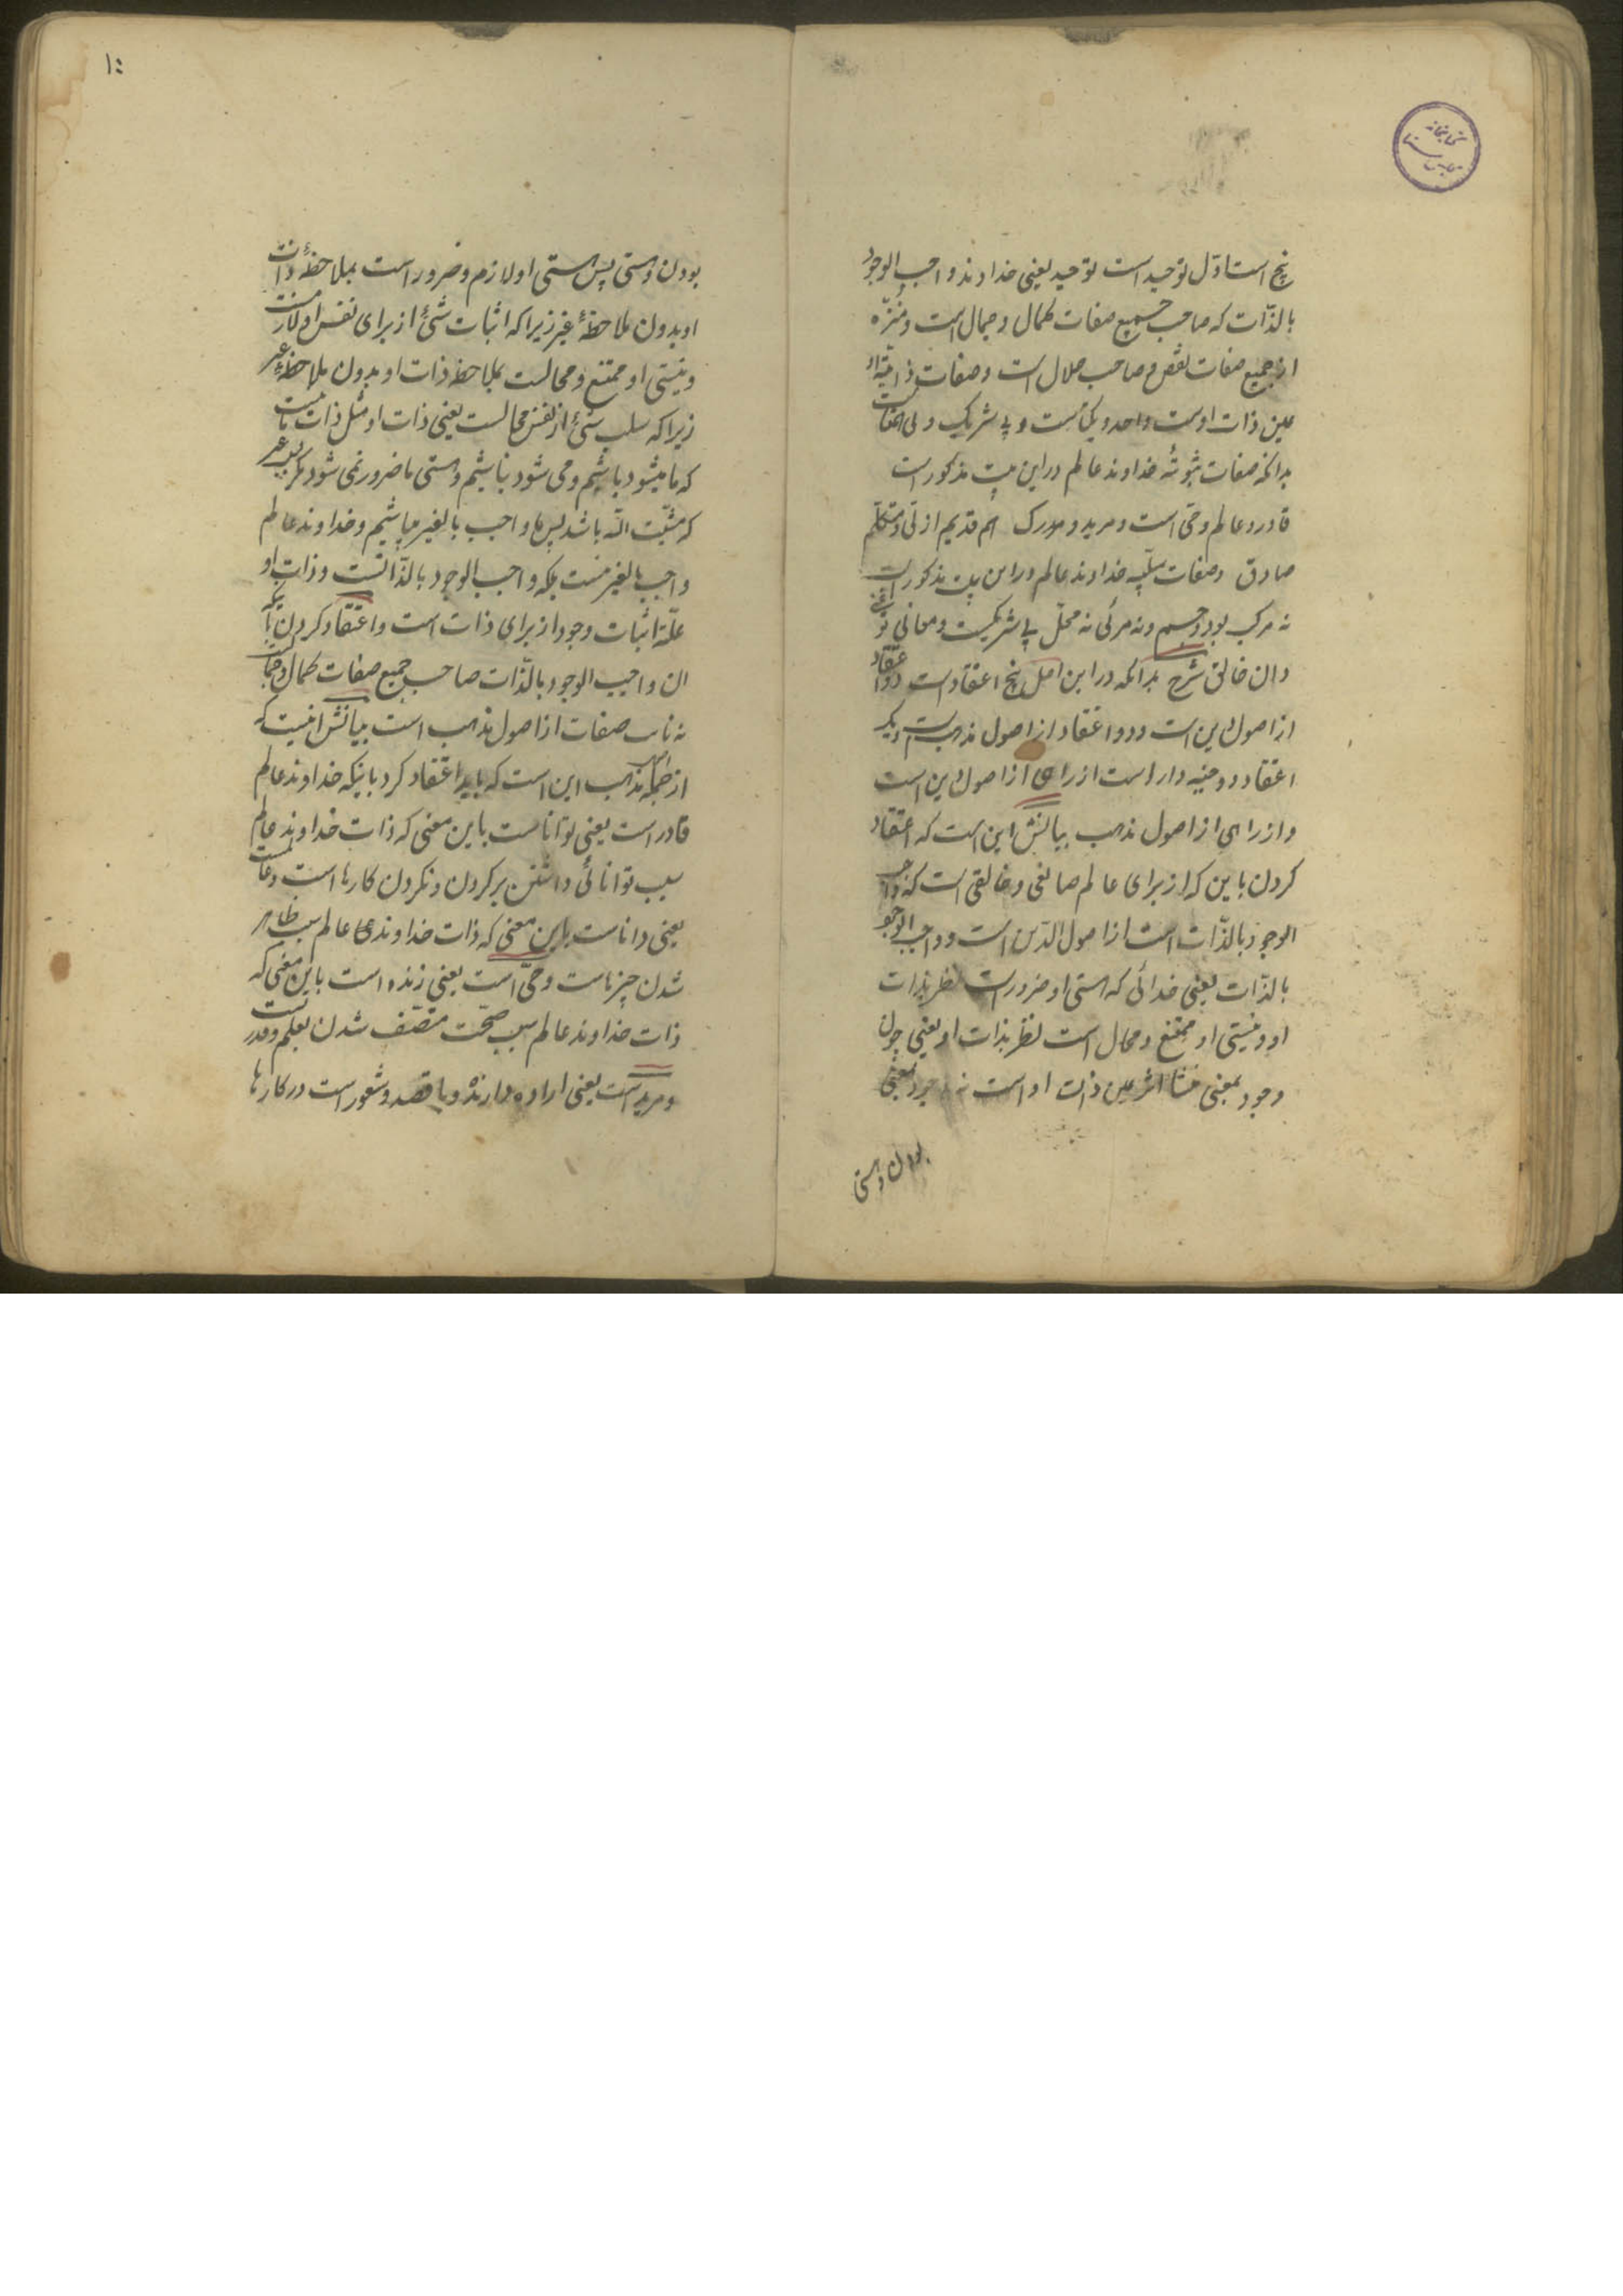 پنج است اوّل توحید است توحید یعنی خداوند واجب الوجود
بالذّات که صاحب جمیع صفات کمال و جمال است و منزّه
از جمیع صفات نقص و صاحب جلال است و صفات ذاتیّه او
عین ذات اوست واحد و یکتاست و بی شریک و بی همتاست
بدانکه صفات ثبوتیّه خداوند عالم در این بیت مذکور است
قادر و عالم و حیّ است و مرید و مدرک هم قدیم ازلی و متکلّم
صادق وصفات سلبیّه خداوند عالم در این بیت مذکور است
نه مرکب بود و جسم و نه مرئی نه محلّ بی شریکست و معانی تو غنی
دان خالق شرح بدانکه در این اصل پنج اعتقاد است دو اعتقاد
از اصول دین است و دو اعتقاد از اصول مذهب است و یک
اعتقاد دو جنبه دار است از راهی از اصول دین است
و از راهی از اصول مذهب بیانش این است که اعتقاد
کردن باین که از برای عالم صانعی و خالقی است که واجب
الوجود بالذّات است از اصول الدّین است و واجب الوجود
بالذّات یعنی خدائی که هستی او ضرور است نظر بذات
او و نیستی او ممتنع و محال است نظر بذات او یعنی چون
وجود بمعنی منشأ اثر عین ذات او است نه وجود بمعنی
بودن و هستی
۱۰
بودن و هستی پس هستی او لازم و ضرور است بملاحظهٔ ذات
او بدون ملاحظهٔ غیر زیرا که اثبات شئ از برای نفس او لازمست
و نیستی او ممتنع و محالست بملاحظه ذات او بدون ملاحظهٔ غیر
زیرا که سلب شئ از نفس محالست یعنی ذات او مثل ذات ما نیست
که ما میشود باشیم و می شود نباشیم و هستی ما ضرور نمی شود مگر بغیر
که مشیّت اللّه باشد پس ما واجب بالغیر میباشیم و خداوند عالم
واجب بالغیر نیست بلکه واجب الوجود بالذّاتست و ذات او
علّة اثبات وجود از برای ذات است و اعتقاد کردن باینکه
ان واجب الوجود بالذّات صاحب جمیع صفات کمال و جمالست
نه نایب صفات از اصول مذهب است بیانش اینست که
از جمله مذهب این است که باید اعتقاد کرد باینکه خداوند عالم
قادر است یعنی تواناست باین معنی که ذات خداوند عالم
سبب توانائی داشتن بر کردن و نکردن کارها است و عالمست
یعنی داناست باین معنی که ذات خداوند عالم سبب ظاهر
شدن چیزهاست و حیّ است یعنی زنده است باین معنی که
ذات خداوند عالم سبب صحّت متّصف شدن بعلم و قدرتست
و مرید است یعنی اراده دارنده و با قصد و شعور است در کارها